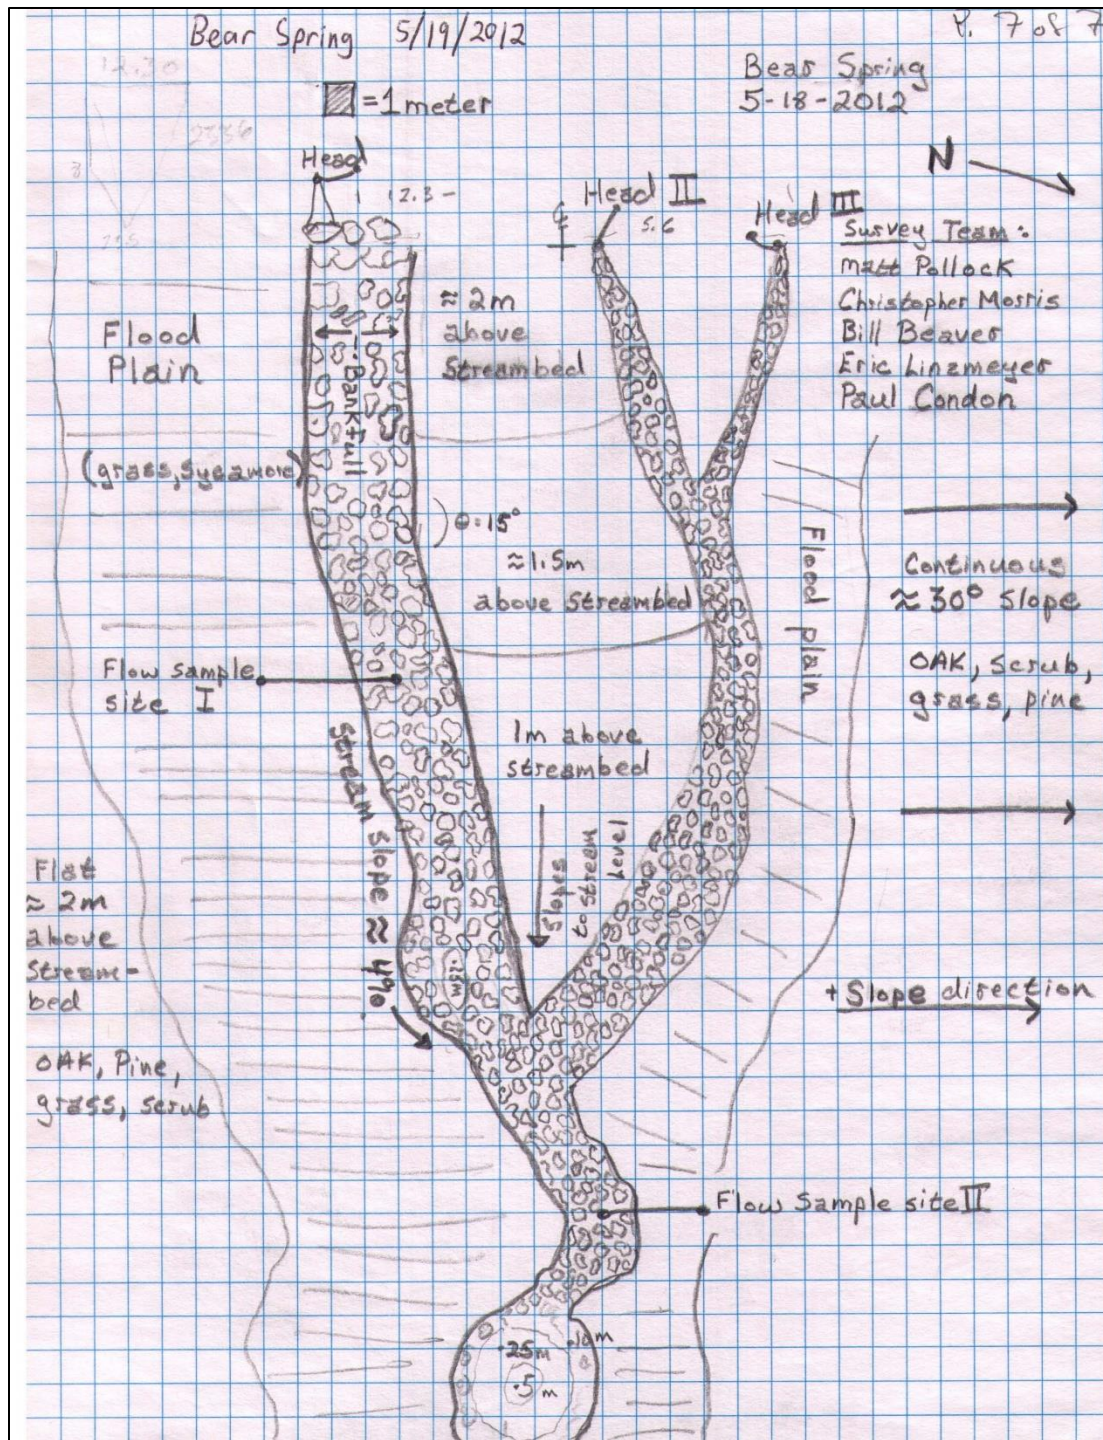 Bear Spring 5/19/2012
P. 7 of 7
Bear Spring
5-18-2012
= 1 meter
N
Head
12.3 -
Head II
5.6
Head III
Survey Team:
Matt Pollock
Christopher Morris
Bill Beaver
Eric Linzmeyer
Paul Condon
Flood
Plain
(grass, Sycamore)
Bankfull
≈ 2m
above
Streambed
θ = 15°
≈ 1.5m
above streambed
Flood plain
Continuous
≈ 30° slope
OAK, scrub,
grass, pine
Flow sample
site I
1m above
streambed
Slopes
to stream
level
stream slope ≈ 4%
Flat
≈ 2m
above
Stream-
bed
OAK, Pine,
grass, scrub
.25m
+ Slope direction
Flow Sample site II
.10m
.25m
.5m